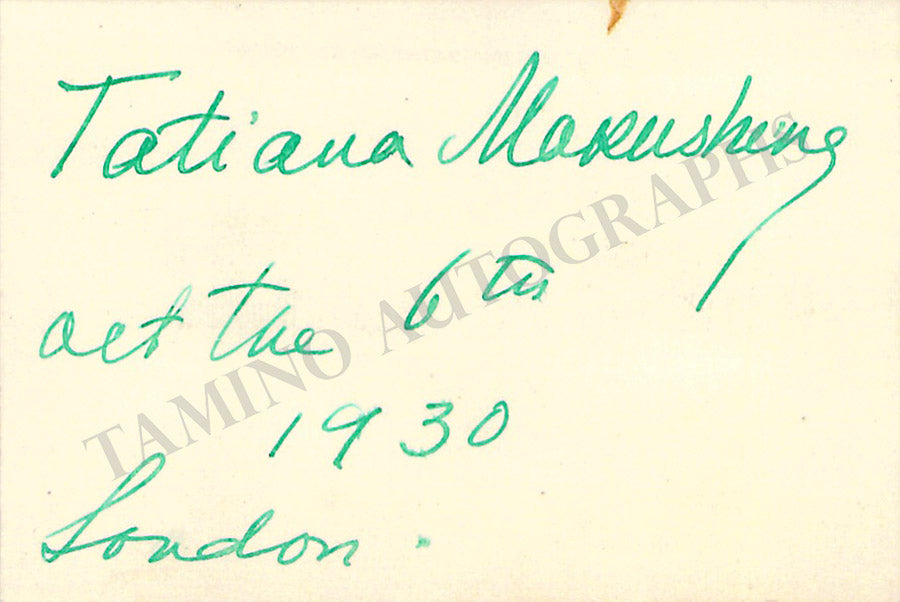 Tatiana Makushina
oct the 6th
1930
London.
TAMINO AUTOGRAPHS